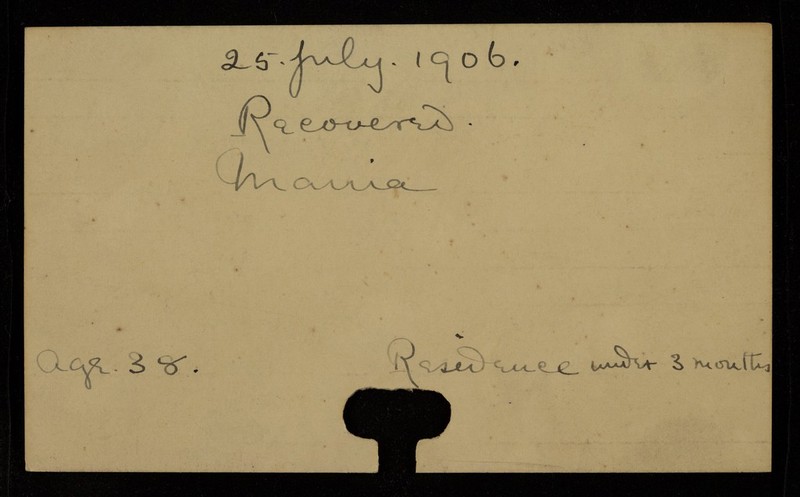 25. July. 1906.
Recovered.
Mania
Age. 38.
Residence under 3 months